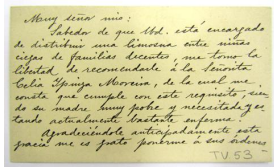 Muy señor mio:
Sabedor de que Vd. está encargado
de distribuir una limosna entre niñas
ciegas de familias decentes me tomo la
libertad de recomendarle á la Señorita
Celia Moreira, de la cual me
consta que cumple con este requisito, sien
do su madre muy pobre y necesitada y es
tando actualmente bastante enferma.
Agradeciéndole anticipadamente esta
gracia me es grato ponerme á sus órdenes
TV 53 -